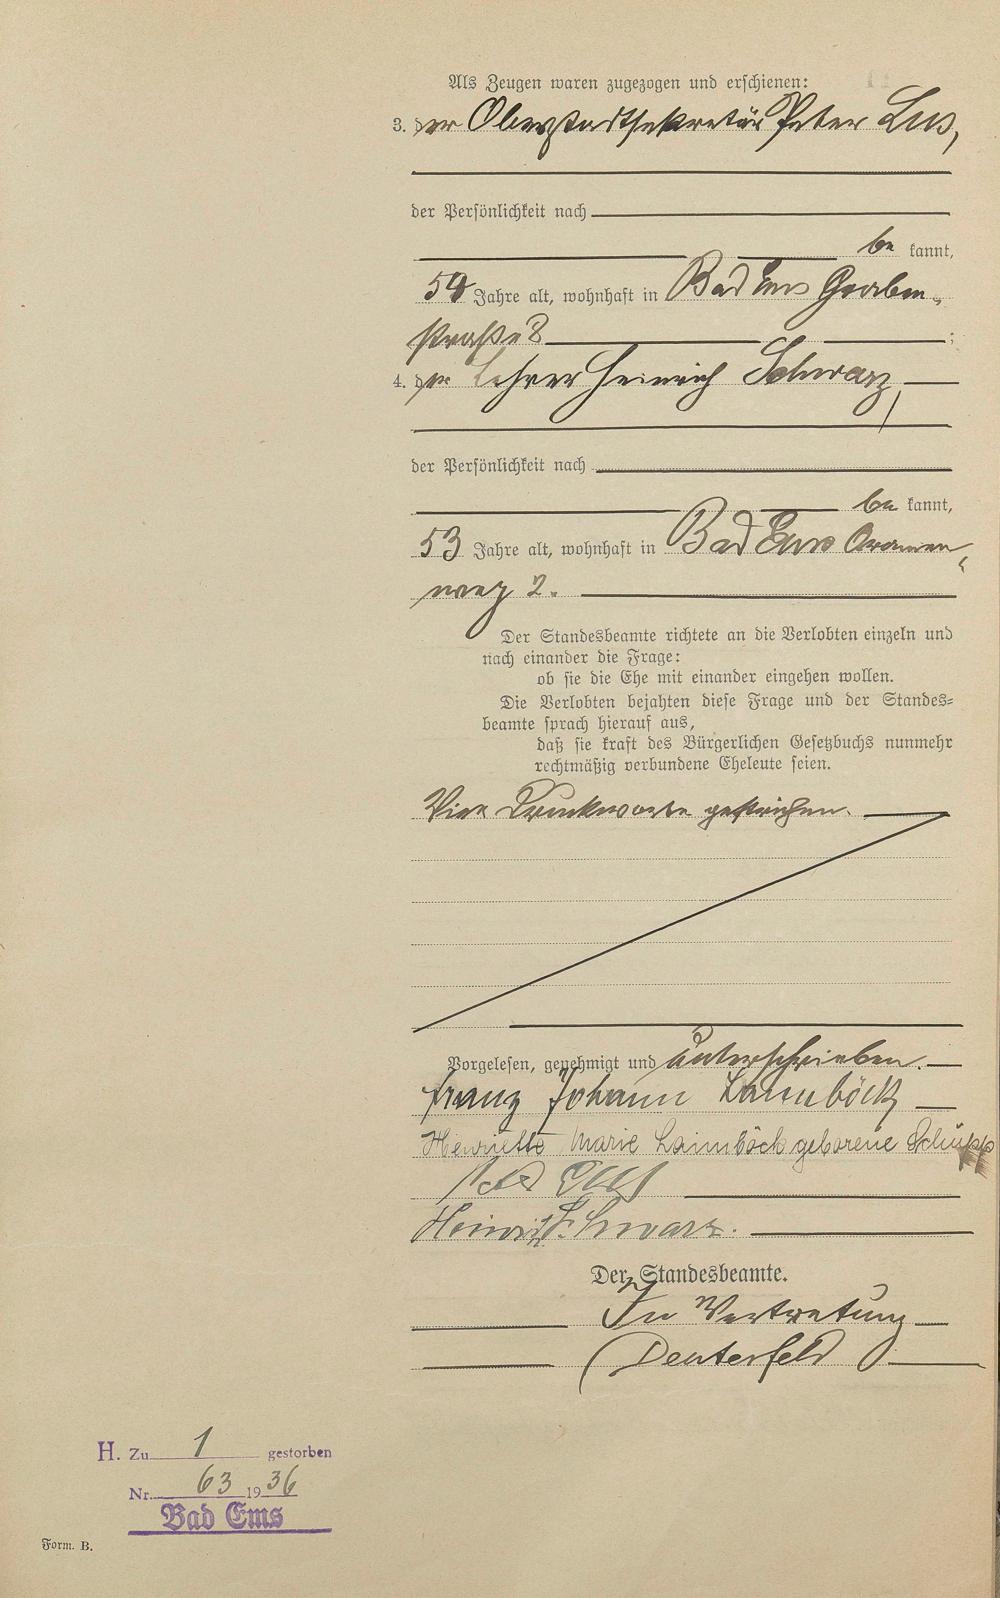 Als Zeugen waren zugezogen und erschienen:
3. der Oberstadtsekretär Peter Lus,
der Persönlichkeit nach
be kannt,
54 Jahre alt, wohnhaft in Bad Ems Graben-
straße 8 ;
4. der Lehrer Heinrich Schwarz,
der Persönlichkeit nach
be kannt,
53 Jahre alt, wohnhaft in Bad Ems Oranien-
weg 2.
Der Standesbeamte richtete an die Verlobten einzeln und
nach einander die Frage:
ob sie die Ehe mit einander eingehen wollen.
Die Verlobten bejahten diese Frage und der Standes-
beamte sprach hierauf aus,
daß sie kraft des Bürgerlichen Gesetzbuchs nunmehr
rechtmäßig verbundene Eheleute seien.
Vier Druckworte gestrichen.
Vorgelesen, genehmigt und unterschrieben.
Franz Johann Laimböck
Henriette Marie Laimböck geborene Schupp
Heinrich Schwarz.
Der Standesbeamte.
In Vertretung
Deuterfeld
H. Zu 1 gestorben
Nr. 63 1936
Bad Ems
Form. B.